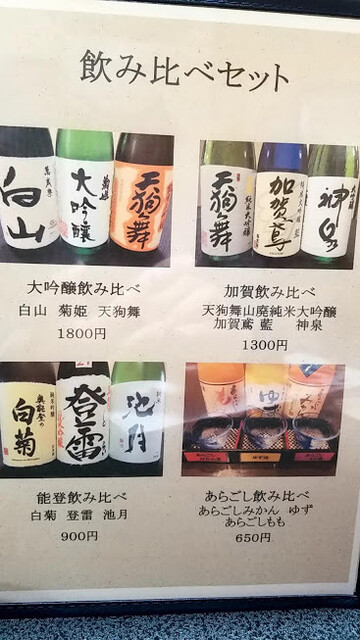 飲み比べセット
萬歳楽
白山
菊姫
大吟醸
天狗舞
天狗舞
純米大吟醸
加賀鳶
純米大吟醸 藍
神泉
大吟醸飲み比べ
白山 菊姫 天狗舞
1800円
加賀飲み比べ
天狗舞山廃純米大吟醸
加賀鳶 藍 神泉
1300円
純米吟醸
奥能登の
白菊
登雷
池月
ゆず
能登飲み比べ
白菊 登雷 池月
900円
あらごし飲み比べ
あらごしみかん ゆず
あらごしもも
650円